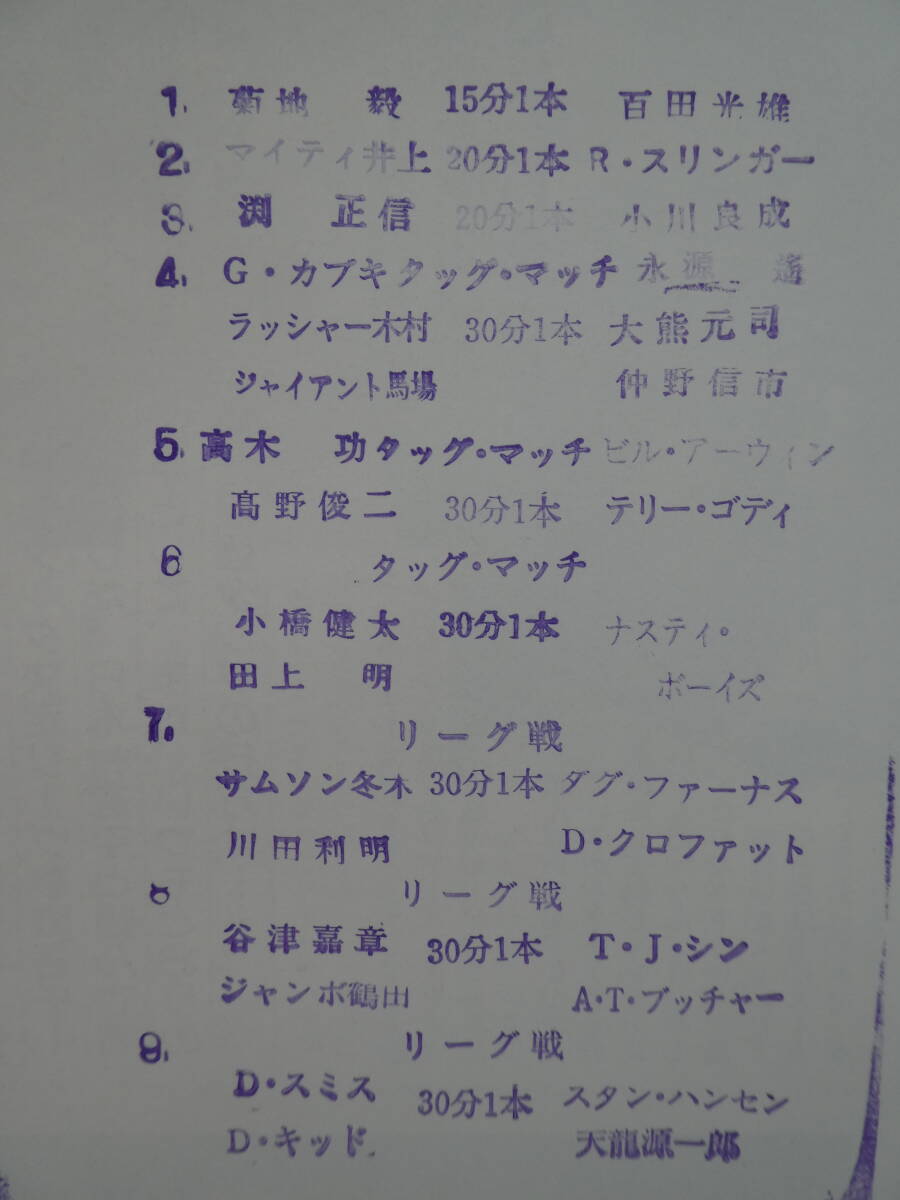 1. 菊地 毅 15分1本 百田光雄
2. マイティ井上 20分1本 R・スリンガー
3. 渕 正信 20分1本 小川良成
4. G・カブキ タッグ・マッチ 永源 遙
ラッシャー木村 30分1本 大熊元司
ジャイアント馬場 仲野信市
5. 高木 功 タッグ・マッチ ビル・アーウィン
高野俊二 30分1本 テリー・ゴディ
6 タッグ・マッチ
小橋健太 30分1本 ナスティ・
田上 明 ボーイズ
7. リーグ戦
サムソン冬木 30分1本 ダグ・ファーナス
川田利明 D・クロファット
8 リーグ戦
谷津嘉章 30分1本 T・J・シン
ジャンボ鶴田 A・T・ブッチャー
9. リーグ戦
D・スミス 30分1本 スタン・ハンセン
D・キッド 天龍源一郎